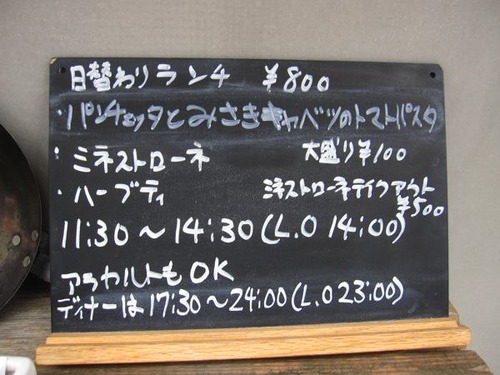 日替わりランチ ¥800
・パンチェッタとみさきキャベツのトマトパスタ
・ミネストローネ 大盛り¥100
・ハーブティ ミネストローネテイクアウト
¥500
11:30〜14:30(L.O 14:00)
アラカルトもOK
ディナーは17:30〜24:00(L.O 23:00)